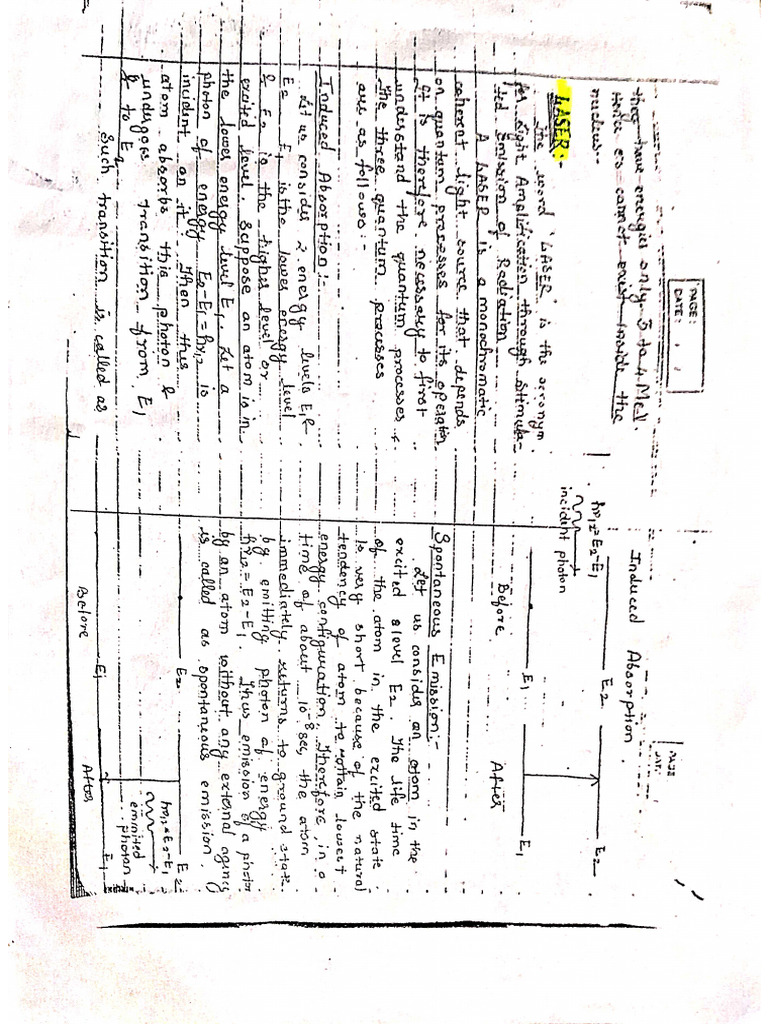 PAGE:
DATE: / /
they have energies only 3 to 4 MeV.
Hence es cannot exist inside the
nucleus.
LASER:-
The word 'LASER' is the acronym
for Light Amplification through Stimula-
ted Emission of Radiation
A LASER is a monochromatic
coherent light source that depends
on quantum processes for its operation
It is therefore necessary to first
understand the quantum processes
The three quantum processes
are as follows:-
Induced Absorption:-
Let us consider 2 energy levels E1 &
E2 E1 is the lower energy level
& E2 is the higher level or
excited level. Suppose an atom is in
the lower energy level E1. Let a
photon of energy E2-E1=hν12 is
incident on it. Then this
atom absorbs this photon &
undergoes transition from E1
& to E2
Such transition is called as
Induced Absorption.
E2
E2
hν12=E2-E1
incident photon
E1
E1
Before
After
Spontaneous Emission:-
Let us consider an atom in the
excited level E2. The life time
of the atom in the excited state
is very short because of the natural
tendency of atom to attain lowest
energy configuration. Therefore, in a
time of about 10-8 sec, the atom
immediately returns to ground state
by emitting photon of energy
hν12=E2-E1. Thus emission of a photon
by an atom without any external agency
is called as spontaneous emission.
E2
E2
hν12=E2-E1
emmited
photon
E1
E1
Before
After